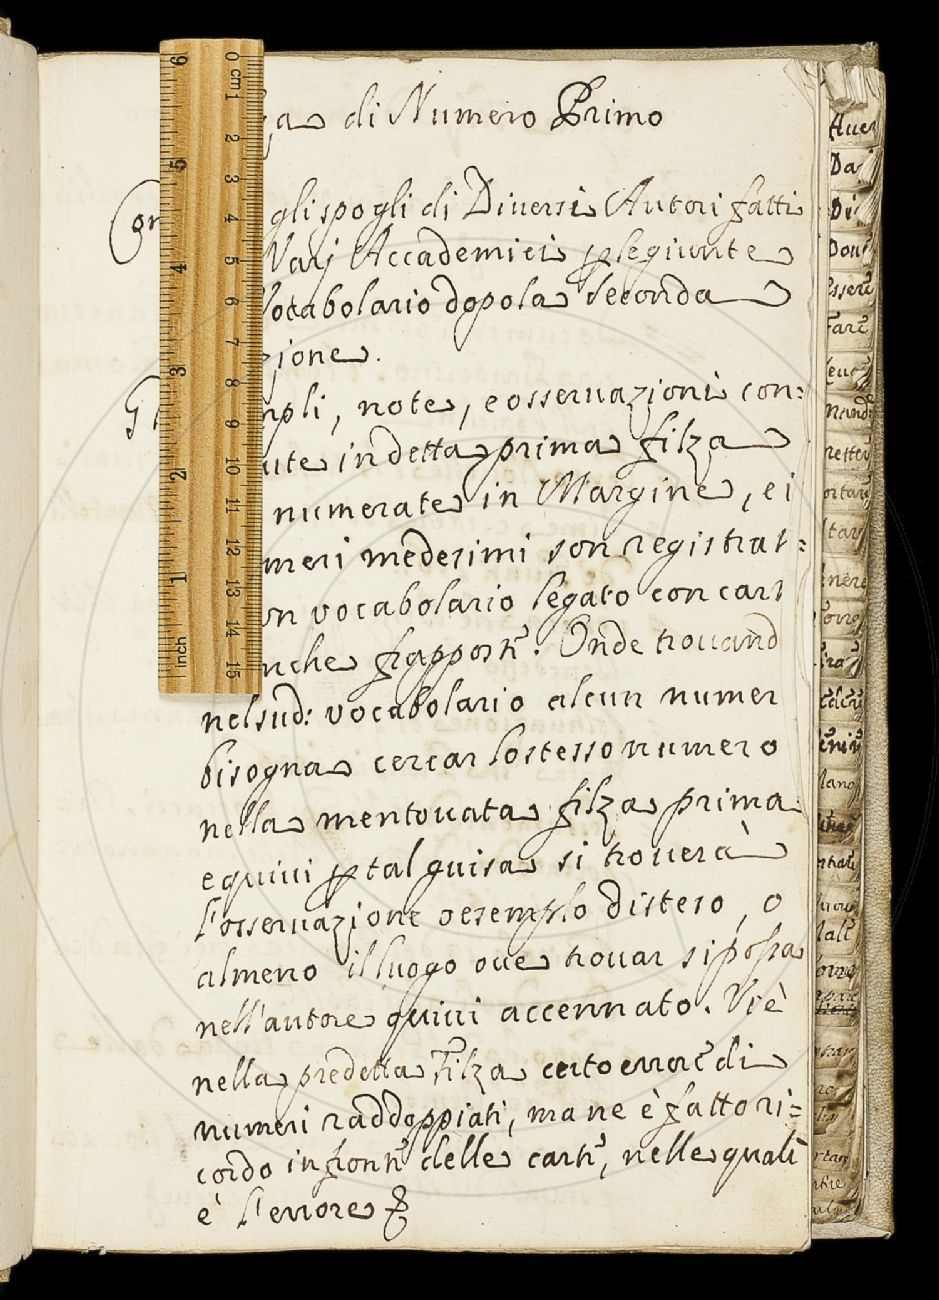 di Numero Primo
gli spogli di Diversi Autori fatti
Varj Accademici ple giunte
Vocabolario dopo la Seconda
zione.
mpli, note, e osservazioni con=
ute in detta prima filza
numerate in Margine, ei
meri medesimi son registrat=
un vocabolario legato con cart
nche frapposte. Onde trovand
nel sud: vocabolario alcun numer
bisogna cercar lo stesso numero
nella mentovata filza prima
e quivi p tal guisa si troverà
l'osservazione o esemplo disteso, o
almeno il luogo ove trovar si possa
nell'autore quivi accennato. Vi è
nella predetta Filza certo errore di
numeri raddoppiati, ma ne è fatto ri=
cordo in fronte delle carte, nelle quali
è l'errore
0 cm 1 2 3 4 5 6 7 8 9 10 11 12 13 14 15
inch 1 2 3 4 5 6